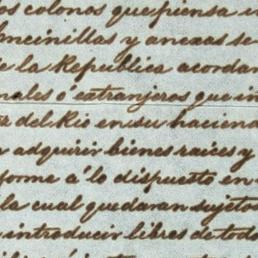 os colonos que piensa es
Encinillas y anexas se
e la Republica acordan
nales ó extranjeros que in
del Rio en sus haciend
adquirir bienes raices y
forme á lo dispuesto en
la cual quedaran sujetos
introducir libres de todo